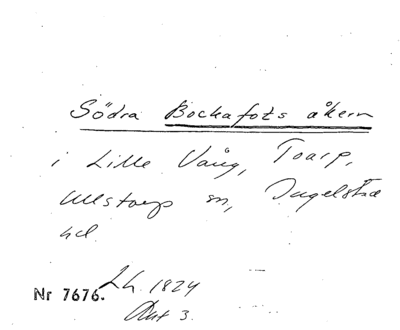 Södra Bockafots åkern
i Lille Vång, Toarp,
Ullstorps sn, Ingelstad
hd.
Lh. 1824
Nr 7676.
Akt 3.